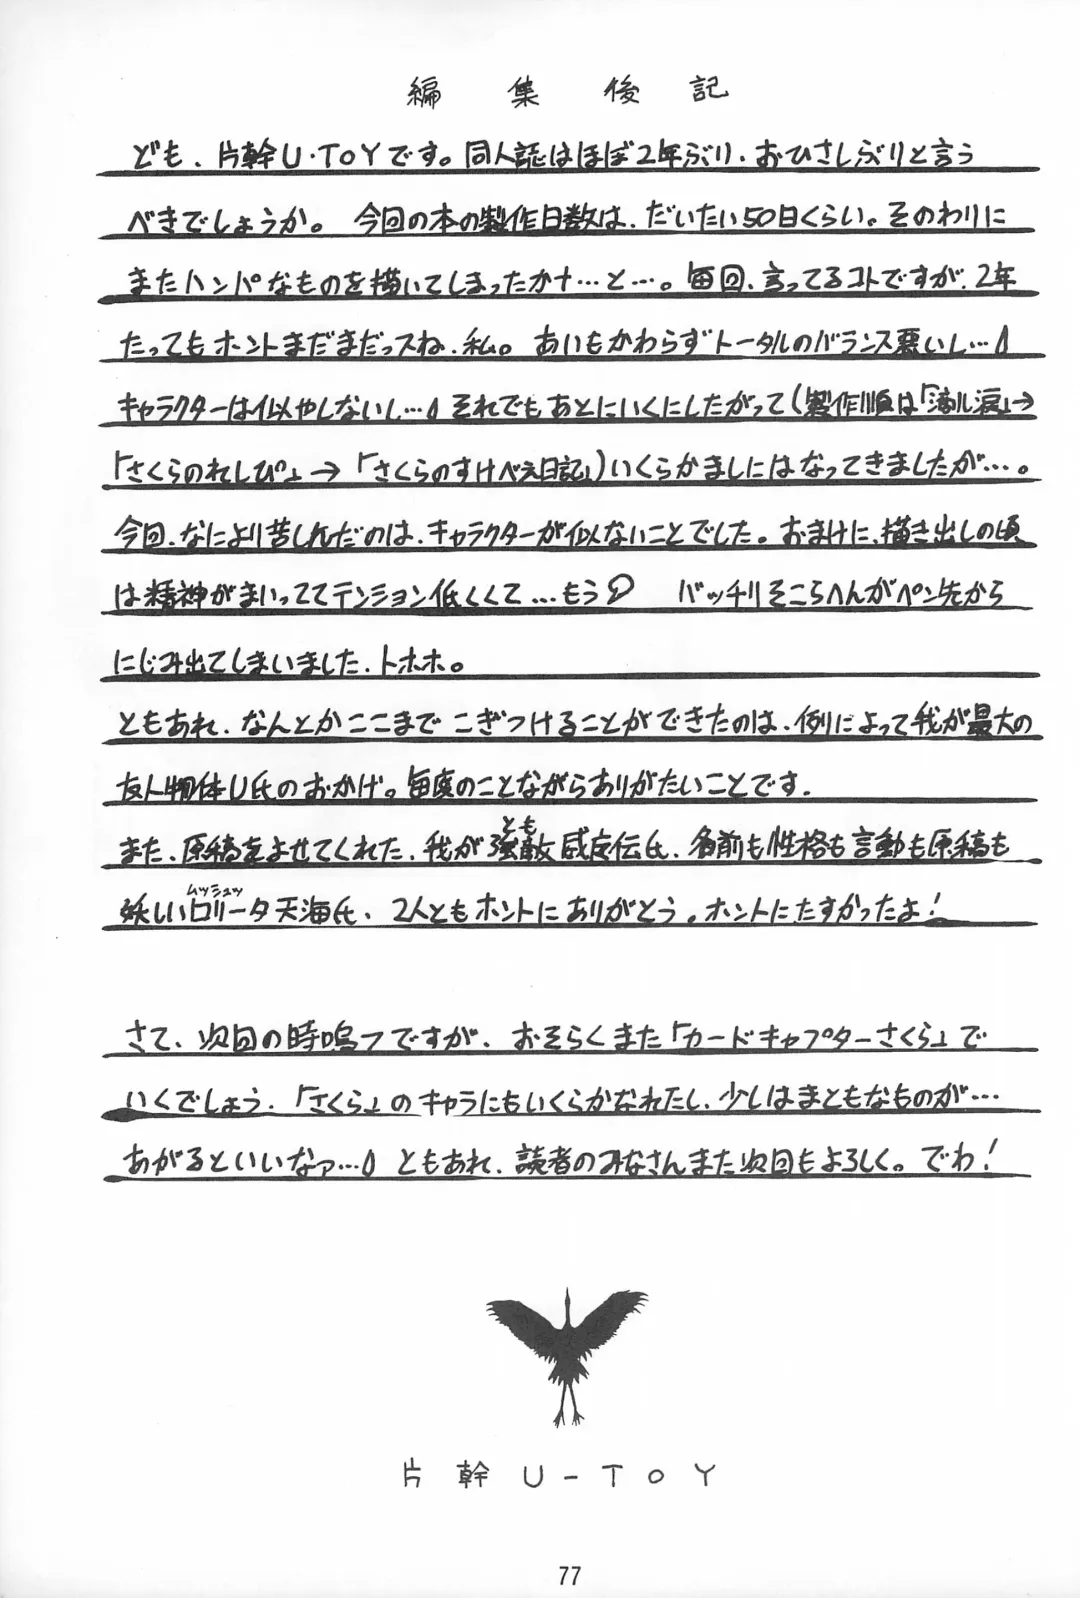 編集後記
ども、片幹U・TOYです。同人誌はほぼ2年ぶり、おひさしぶりと言う
べきでしょうか。 今回の本の製作日数は、だいたい50日くらい。そのわりに
またハンパなものを描いてしまったかナ…と…。毎回、言ってるコトですが、2年
たってもホントまだまだっスね、私。 あいもかわらずトータルのバランス悪いし…
キャラクターは似やしないし… それでもあとにいくにしたがって(製作順は「満ル涙」→
「さくらのれしぴ」→「さくらのすけべえ日記」)いくらかましにはなってきましたが…。
今回、なにより苦しんだのは、キャラクターが似ないことでした。おまけに、描き出しの頃
は精神がまいっててテンション低くくて…もう バッチリそこらへんがペン先から
にじみ出てしまいました、トホホ。
ともあれ、なんとかここまでこぎつけることができたのは、例によって我が最大の
友人物体U氏のおかげ。毎度のことながらありがたいことです.
また、原稿をよせてくれた、我が強敵(とも)感度伝氏、名前も性格も言動も原稿も
妖しいロリータ(ムッシュッ)天海氏、2人ともホントにありがとう。ホントにたすかったよ!
さて、次回の時鳴フですが、おそらくまた「カードキャプターさくら」で
いくでしょう.「さくら」のキャラにもいくらかなれたし、少しはまともなものが…
あがるといいなァ… ともあれ、読者のみなさんまた次回もよろしく。でわ!
片幹U-TOY
77